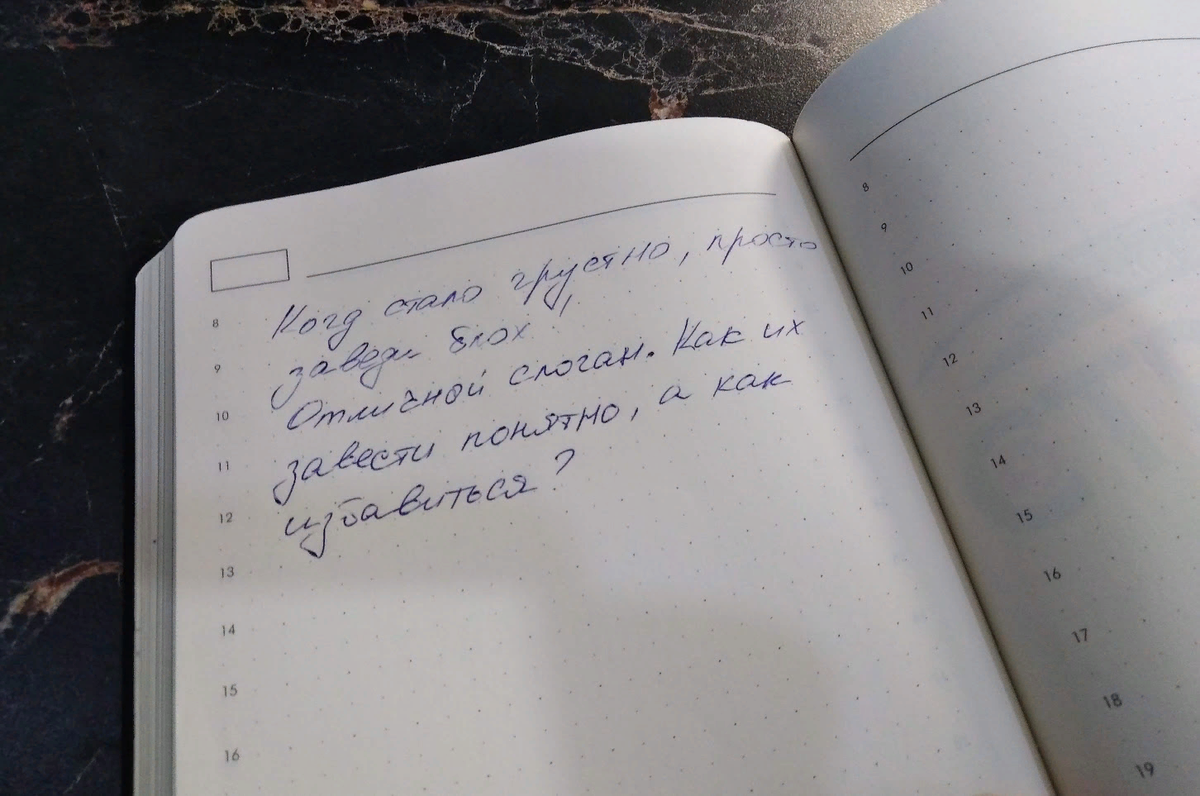 Когд стало грустно, просто
заведи блох
Отличной слоган. Как их
завести понятно, а как
избавиться?
8
9
10
11
12
13
14
15
16
8
9
10
11
12
13
14
15
16
17
18
19